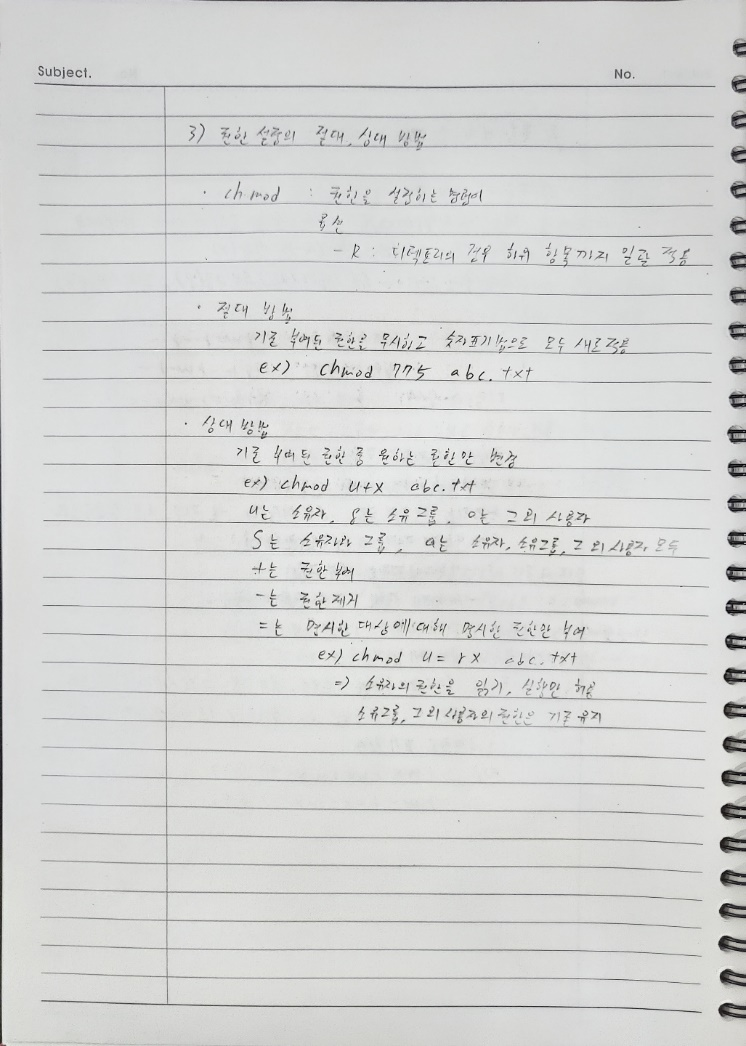 Subject.
No.
3) 권한 설정의 절대, 상대 방법
· chmod : 권한을 설정하는 명령어
옵션
- R : 디렉토리의 경우 하위 항목까지 일괄 적용
· 절대 방법
기존 부여된 권한을 무시하고 숫자표기법으로 모두 새로 적용
ex) chmod 775 abc.txt
· 상대 방법
기존 부여된 권한 중 원하는 권한만 변경
ex) chmod u+x abc.txt
u는 소유자, g는 소유 그룹, o는 그 외 사용자
S는 소유자와 그룹, a는 소유자, 소유그룹, 그 외 사용자 모두
+는 권한 부여
-는 권한 제거
=는 명시한 대상에 대해 명시한 권한만 부여
ex) chmod u=rx abc.txt
=> 소유자의 권한을 읽기, 실행만 허용
소유그룹, 그 외 사용자의 권한은 기존 유지